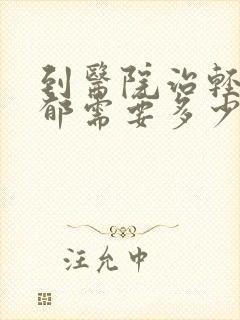 到醫院治輕
郁需要多少
汪允中